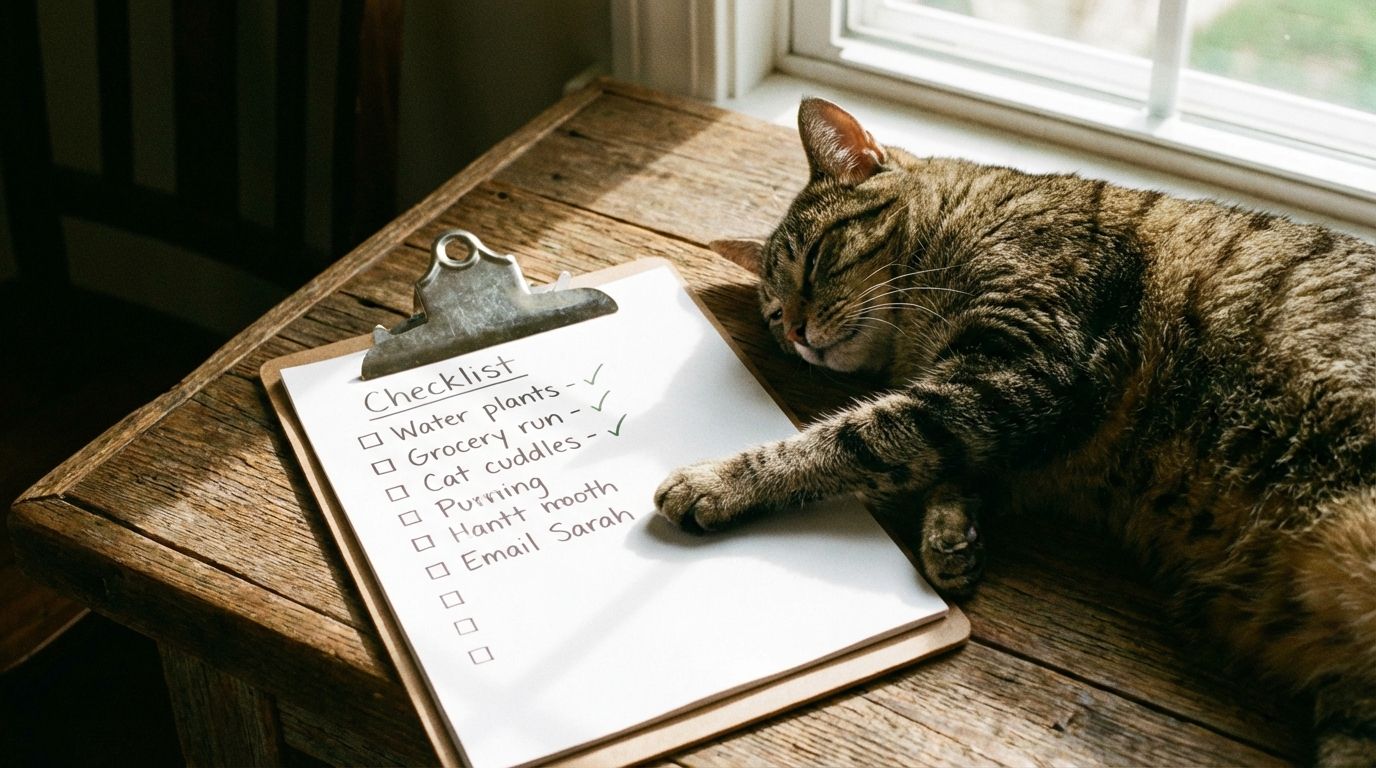 Checklist
Water plants - ✓
Grocery run - ✓
Cat cuddles - ✓
Purrning
Hantt mooth
Email Sarah